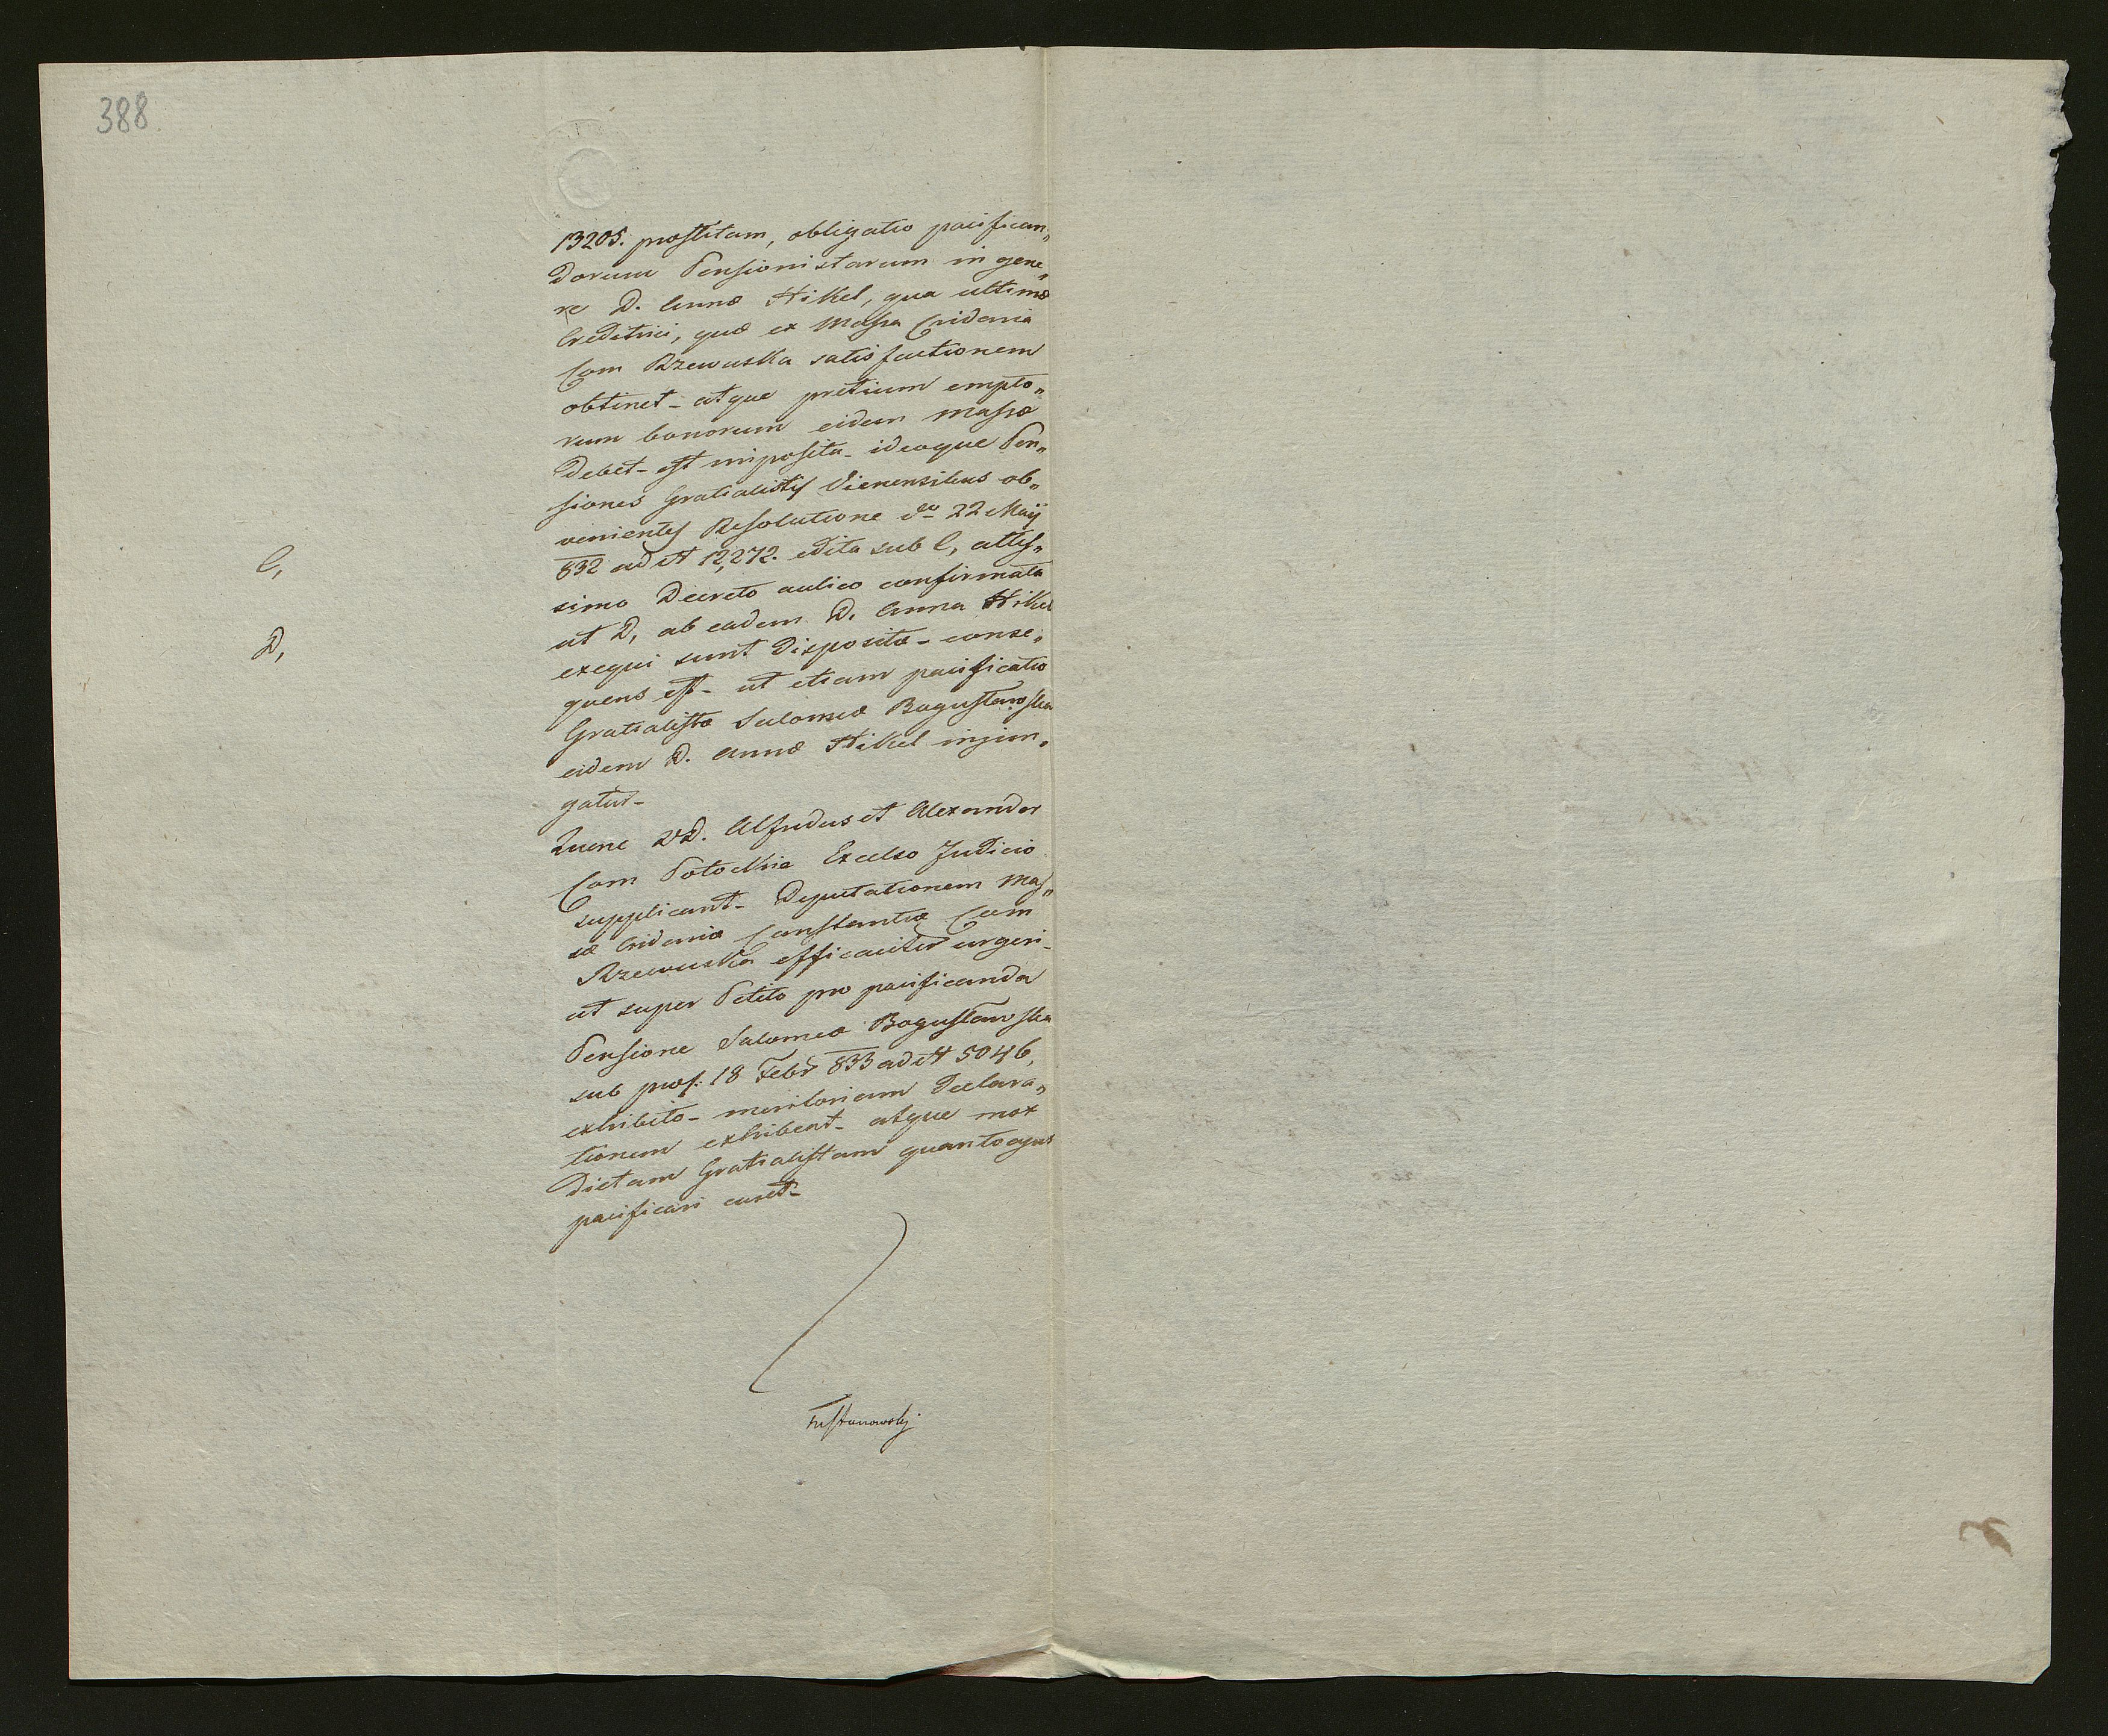 388
13205. prostitam, obligatio pacifican„
dorum Pensionistarum in gene„
re D. Annæ Hikel, qua ultimæ
Creditrici, quæ ex Massa Cridaria
Com Rzewuska satisfactionem
obtinet – atque pretium empto„
rum bonorum eidem Massæ
debet – est imposita – ideoque Pen„
siones Gratialistis Vienensibus ob„
venientes Resolutione dto 22 Maij
C,
832 ad N 12,272. edita sub C, altis„
simo Decreto aulico confirmata
D,
ut D, ab eadem D. Anna Hikel
exequi sunt dispositæ – conse„
quens est – ut etiam pacificatio
Gratialistæ Salomeæ Bogusławska
eidem D. Annæ Hikel injun„
gatur –
Quare DD. Alfredus et Alexander
Com Potockie Excelso Judicio
supplicant – Deputationem Mas„
sæ Cridariæ Constantiæ Com
Rzewuska efficaciter urgeri –
ut super Petito pro pacificanda
Pensione Salomeæ Bogusławska
sub præs: 18 Febr 833 ad N 5046,
exhibito – meritoriam declara„
tionem exhibeat – atque mox
dictam Gratialistam quantocyus
pacificari curet –
Tustanowskj